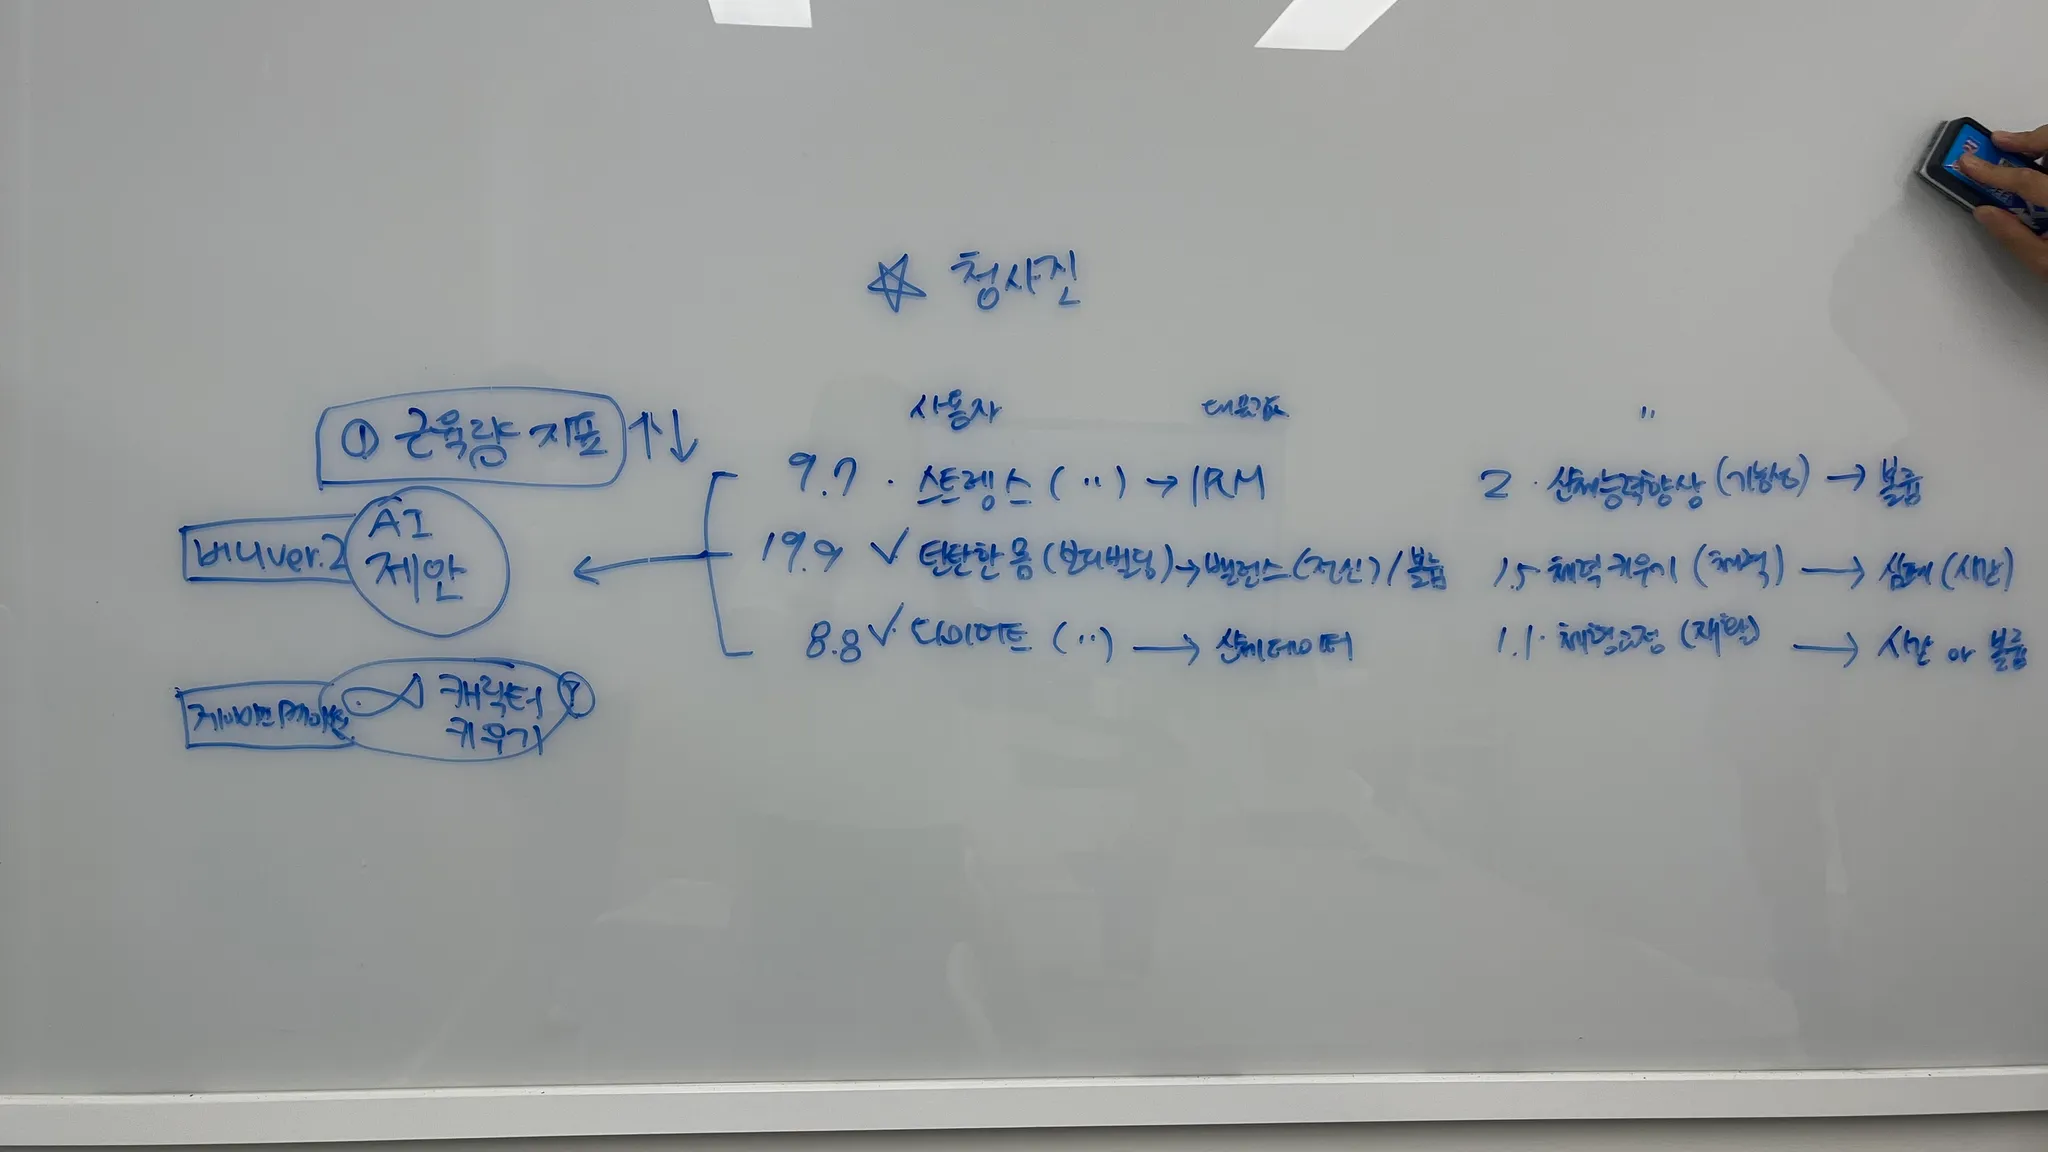 ☆ 청사진
① 근육량 지표 ↑↓
버니ver.2 AI 제안
캐릭터 키우기
사용자 대표값 〃
9.7 · 스트렝스 (〃) → 1RM
19.9 ✓ 탄탄한 몸 (보디빌딩) → 밸런스 (전신) / 볼륨
8.8 ✓ 다이어트 (〃) → 신체데이터
2 · 신체능력향상 (기능성) → 볼륨
1.5 · 체력 키우기 (체력) → 심폐 (시간)
1.1 · 체형교정 (재활) → 시간 or 볼륨